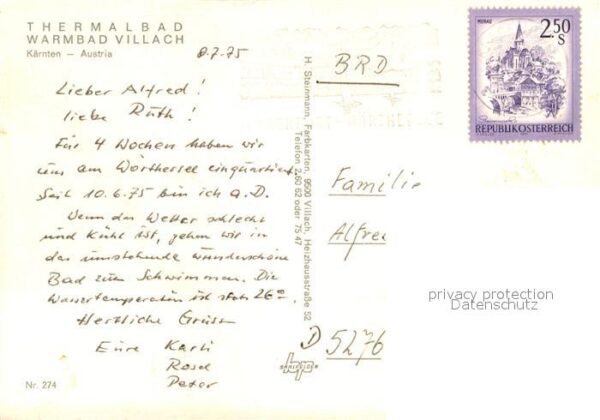 THERMALBAD
WARMBAD VILLACH
Kärnten – Austria
8.7.75
Lieber Alfred!
liebe Ruth!
Für 4 Wochen haben wir
uns am Wörthersee einquartiert
Seit 10.6.75 bin ich a.D.
Wenn das Wetter schlecht
und kühl ist, gehen wir in
das umstehende wunderschöne
Bad zum Schwimmen. Die
Wassertemperatur ist stets 26°
Herzliche Grüsse
Eure Karli
Rosel
Peter
Nr. 274
H. Steinmann, Farbkarten, 9500 Villach, Heizhausstraße 52
Telefon 2 60 62 oder 75 47
BRD
Familie
Alfred
D 5276
MURAU
2.50
S
REPUBLIK ÖSTERREICH
privacy protection
Datenschutz